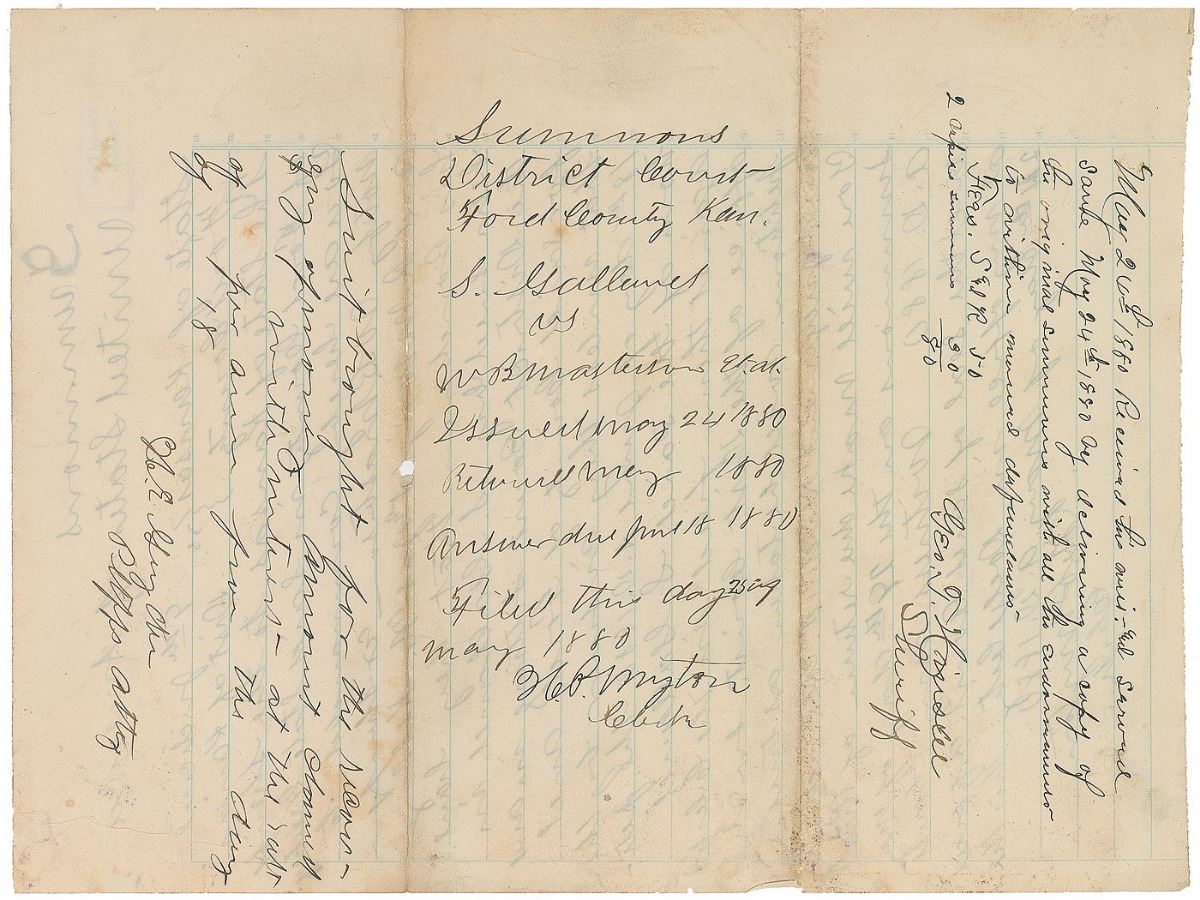 Summons
District Court
Ford County Kan.
S. Gallaned
vs
W B Masterson et. al.
Issued May 24 1880
Returned May 1880
Answer due June 18 1880
Filed this day 25 of
May 1880
H. P. Myton
Clerk
Suit brought for the recov-
ery of money. Amount claimed
$ with Interest at the rate
of per annum from the day
of 18
H. E. Gryden
Plffs atty
May 24th 1880 Received this writ. And served
same May 24th 1880 by delivering a copy of
the original summons with all the endorsements
to within named defendants
Fees. S & R 50
2 copies summons 30
80
Geo. T. Hinkel
Sheriff